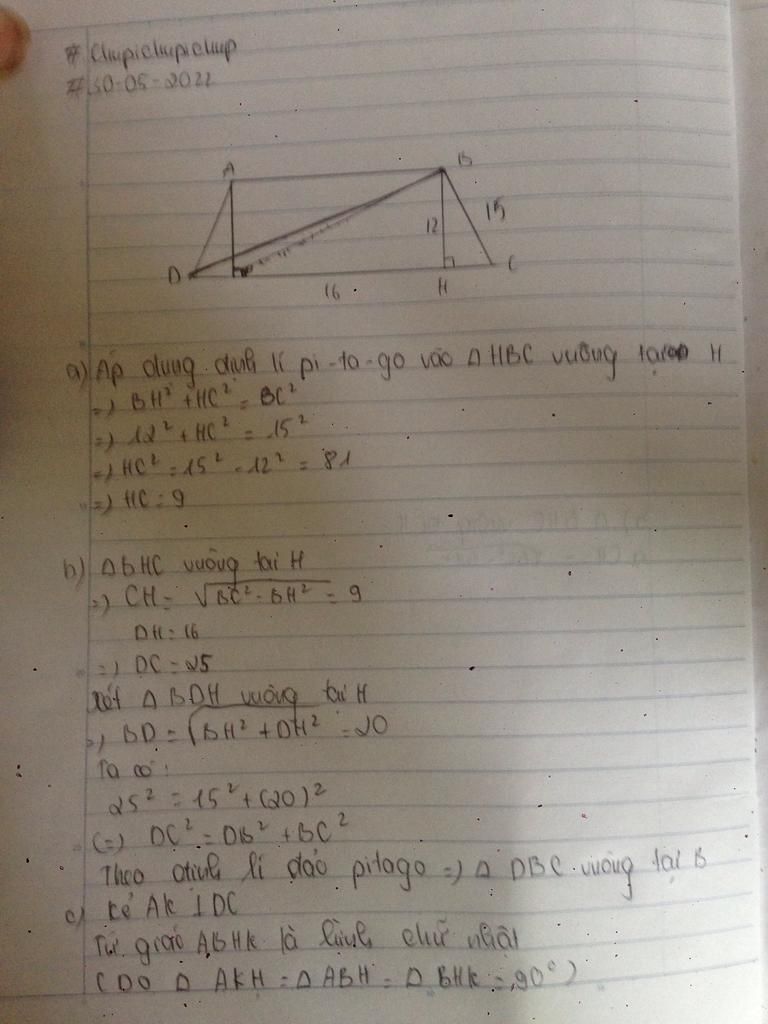 # Chupichupichup
# 30-05-2022
A
B
15
12
D
C
16
H
a) Áp dụng định lí pi-ta-go vào Δ HBC vuông tại H
=) BH² + HC² = BC²
=) 12² + HC² = 15²
=) HC² = 15² - 12² = 81
=) HC = 9
b) ΔBHC vuông tại H
=) CH = √BC² - BH² = 9
DH = 16
=) DC = 25
Xét Δ BDH vuông tại H
=) BD = √BH² + DH² = 20
Ta có:
25² = 15² + (20)²
(=) DC² = DB² + BC²
Theo định lí đảo pitago =) Δ DBC vuông tại B
c) Kẻ AK ⊥ DC
Tứ giác ABHK là hình chữ nhật
( DO Δ AKH = Δ ABH = Δ BHK = 90° )